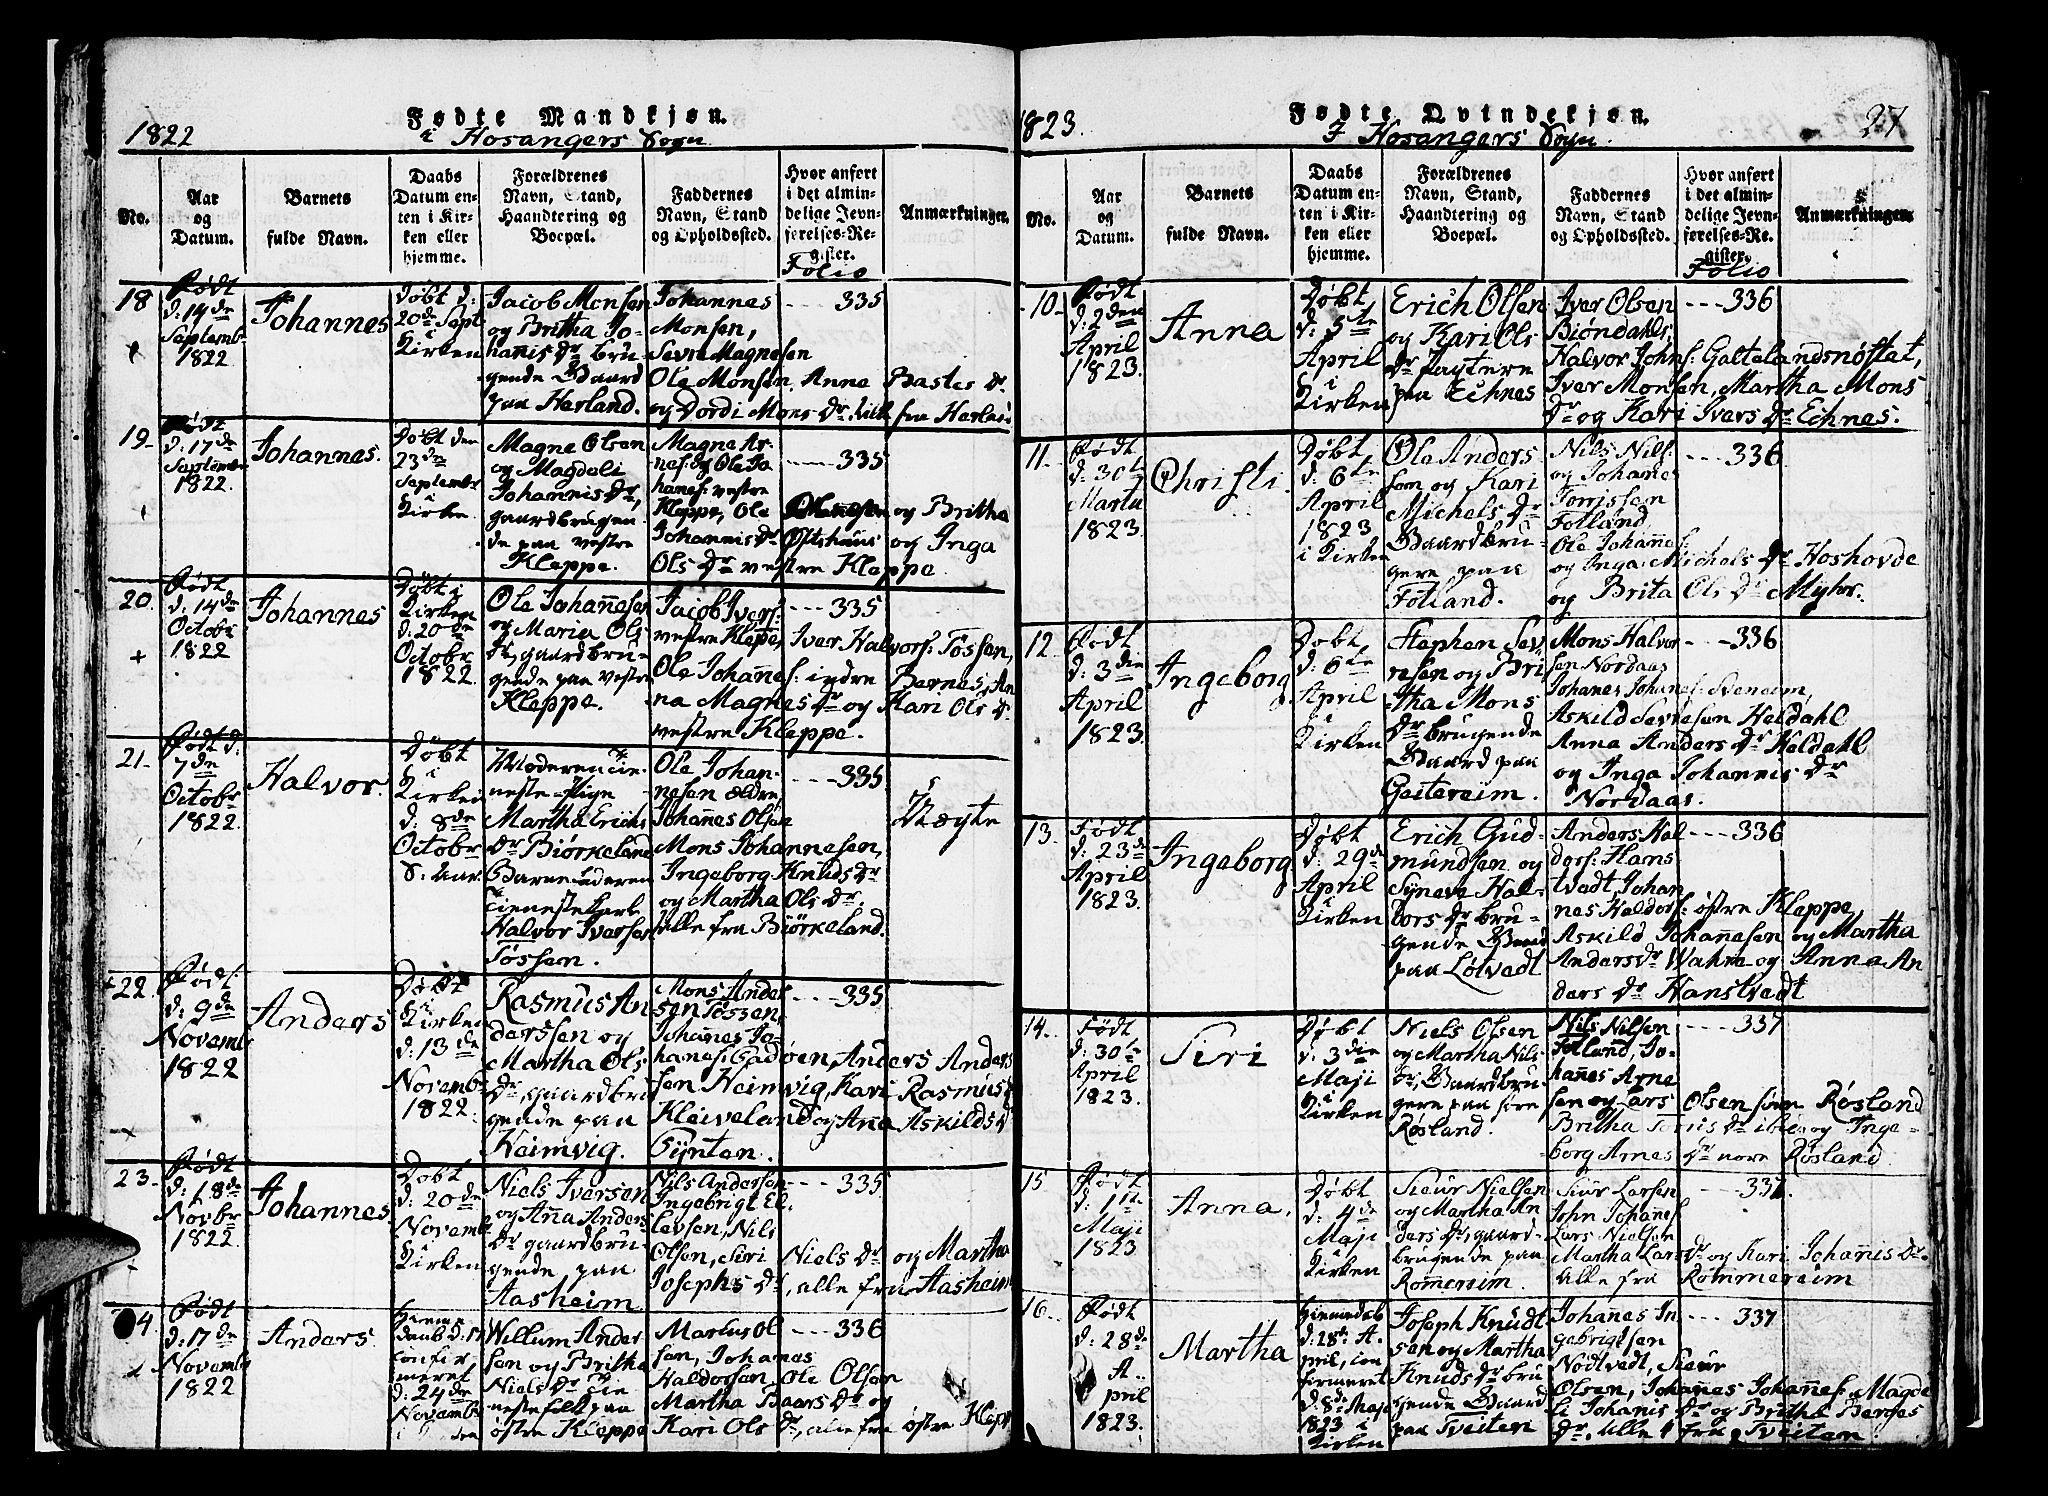 1822
Fødte Mandkjøn.
i Hosangers Sogn
No.
Aar
og
Datum.
Barnets
fulde Navn.
Daabs
Datum en-
ten i Kir-
ken eller
hjemme.
Forældrenes
Navn, Stand,
Haandtering og
Boepæl.
Faddernes
Navn, Stand
og Opholdssted.
Hvor anført
i det almin-
delige Jevn-
førelses-Re-
gister.
Folio
Anmærkninger.
18
Født
d: 14de
Septembr
1822
Johannes
Døbt d:
20de Sept
i
Kirken
Jacob Monsen
og Britha Jo-
hannis Dr bru
gende Gaard
paa Herland.
Johannes
Monsen,
Sevre Magnesen
Ole Monsen, Anna Bastes Dr
og Dordi Mons Dr fra Herland
--- 335
19
Født
d: 17de
Septembr
1822.
Johannes.
Døbt den
23de
Septembr
i
Kirken
Magne Olsen
og Magdeli
Johannis Dr,
gaardbrugen
de paa vestre
Kleppe.
Magne Ar-
nes: og Ole Jo
hannes: vestre
Kleppe, Ole Mongsen og Britha
Johannis Dr Ostshuus og Inga
Ols Dr vestre Kleppe
--- 335
20
Født
d. 14de
Octobr
1822
+
Johannes
Døbt i
Kirken
d: 20de
Octobr
1822
Ole Johannesen
og Maria Ols
Dr, gaardbru-
gende paa vestre
Kleppe.
Jacob Ivers:
vestre Kleppe, Iver Halvors: Tossen,
Ole Johannes: indre Bernes, An
na Magnes Dr og Kari Ols Dr
vestre Kleppe.
--- 335
21
Født d.
7de
Octobr
1822.
Halvor.
Døbt
i
Kirken
d: 8de
Octobr
s: aar.
Moderen Tie-
neste-Pige
Martha Erichs
Dr Biørkeland
Barnefaderen
Tienestekarl
Halvor Iversen
Tossen.
Ole Johan-
nesen ældre
Johannes Olsen
Mons Johannesen,
Ingeborg Knuds Dr
og Martha Ols Dr.
Alle fra Biørkeland.
--- 335
Uægte
22
Født
d: 9de
Novembr
1822
Anders
Døbt
i
Kirken
d: 13de
Novembr
1822.
Rasmus An
derssen og
Martha Ols
Dr, gaardbru
gende paa
Heimvig.
Mons Ander
sen Tossen,
Johannes Jo-
hanes: Gadøen, Anders Anders
sen Heimvig, Kari Rasmus Dr
Kleiveland og Ana Askilds Dr
Eynten.
--- 335
23
Født
d: 18de
Novbr
1822.
Johannes.
Døbt
d: 20de
Novembr
i
Kirken
Niels Iversen
og Anna Anders
Dr gaardbru-
gende paa
Aasheim
Nils Andersen
Ingebrigt El-
levsen, Nils
Olsen, Siri Niels Dr og Martha
Josephs Dr, alle fra Aasheim
--- 335
4.
Født
d: 17de
Novembr
1822
Anders.
hieme
daab d: 17
confir
meret
d: 24de
Novembr
Willum Ander
sen og Britha
Niels Dr Tie
nestefolk paa
østre Kleppe
Markus Ol
sen, Johanes
Haldorsen, Ole Olsen
Martha Baars Dr og
Kari Ols Dr, alle fra østre Kleppe
--- 336
1823.
Fødte Qvindekjøn.
I Hosangers Sogn.
27
No.
Aar
og
Datum.
Barnets
fulde Navn.
Daabs
Datum en-
ten i Kir-
ken eller
hjemme.
Forældrenes
Navn, Stand,
Haandtering og
Boepæl.
Faddernes
Navn, Stand
og Opholdssted.
Hvor anført
i det almin-
delige Jevn-
førelses-Re-
gister.
Folio
Anmærkninger.
10
Født
d. 2den
April
1823.
Anna
Døbt
d: 5te
April
i
Kirken
Erich Olsen
og Kari Ols
Dr
paa Echnes
Iver Olsen
Biøndals,
Halvor Johns: Galtelandsnøstat,
Iver Monsen, Martha Mons
Dr og Kari Ivers Dr Echnes.
--- 336
11.
Født
d: 30te
Martii
1823.
Christi.
Døbt
d: 6te
April
1823
i Kirken
Ole Anders
son og Kari
Michels Dr
Gaardbru-
gere paa
Fotland.
Nils Nils:
og Johanes
Torrissen
Fotland
Ole Johannes:
og Inga Michels Dr Hoshovde
og Brita Ols Dr Myhr.
--- 336
12
Født
d: 3die
April
1823.
Ingeborg
Døbt
d: 6te
April
i
Kirken
Stephen Sev
resen og Bri
tha Mons
Dr brugende
Gaard paa
Geitereim.
Mons Halvor
sen Nordaas
Johanes Johanes: Sveneim,
Askild Sevresen Heldahl
Anna Anders Dr Heldahl
og Inga Johannis Dr
Nordaas.
--- 336
13.
Født
d: 23de
April
1823.
Ingeborg
Døbt
d: 29de
April
i
Kirken
Erich Gud-
mundsen og
Syneve Hal-
vors Dr bru-
gende Gaard
paa Løtvedt
Anders Hal
vors: Hans
tvedt, Johan
nes Haldors: østre Kleppe,
Askild Johannesen og Martha
Anders Dr Wahre og Anna An
ders Dr Hanstvedt
--- 336
14.
Født
d: 30te
April
1823.
Siri
Døbt
d: 3die
Maji
i
Kirken
Niels Olsen
og Martha Nils
Dr, Gaardbru-
gere paa søre
Røsland.
Nils Nilsen
Fotland, Jo-
hannes Arne
sen og Lars Olsen søre Røsland
Britha Torris Dr ibid og Inge-
borg Arnes Dr nore Røsland.
--- 337
15
Født
d: 1ste
Maji
1823
Anna.
Døbt
d: 4de
Maji
i
Kirken
Sieur Nielsen
og Martha An
ders Dr, gaard-
brugende paa
Rommereim.
Siur Larsen
John Johanes:
Lars Nielsen
Martha Lars Dr og Kari Johannis Dr.
Alle fra Rommereim
--- 337.
16.
Født
d: 28de
A-
pril
1823.
Martha
hiemedøb
d: 28de A-
pril, con
firmeret
d. 8de Maji
1823 i
Kirken
Joseph Knudt
sen og Martha
Knuds Dr bru
gende Gaard
paa Tveiten
Johanes In
gebrigtsen
Nødtvedt, Sieur
Olsen, Johanes Johannes: Magde
li Johanis Dr og Britha Børges
Dr. Alle 4 fra Tveiten
--- 337